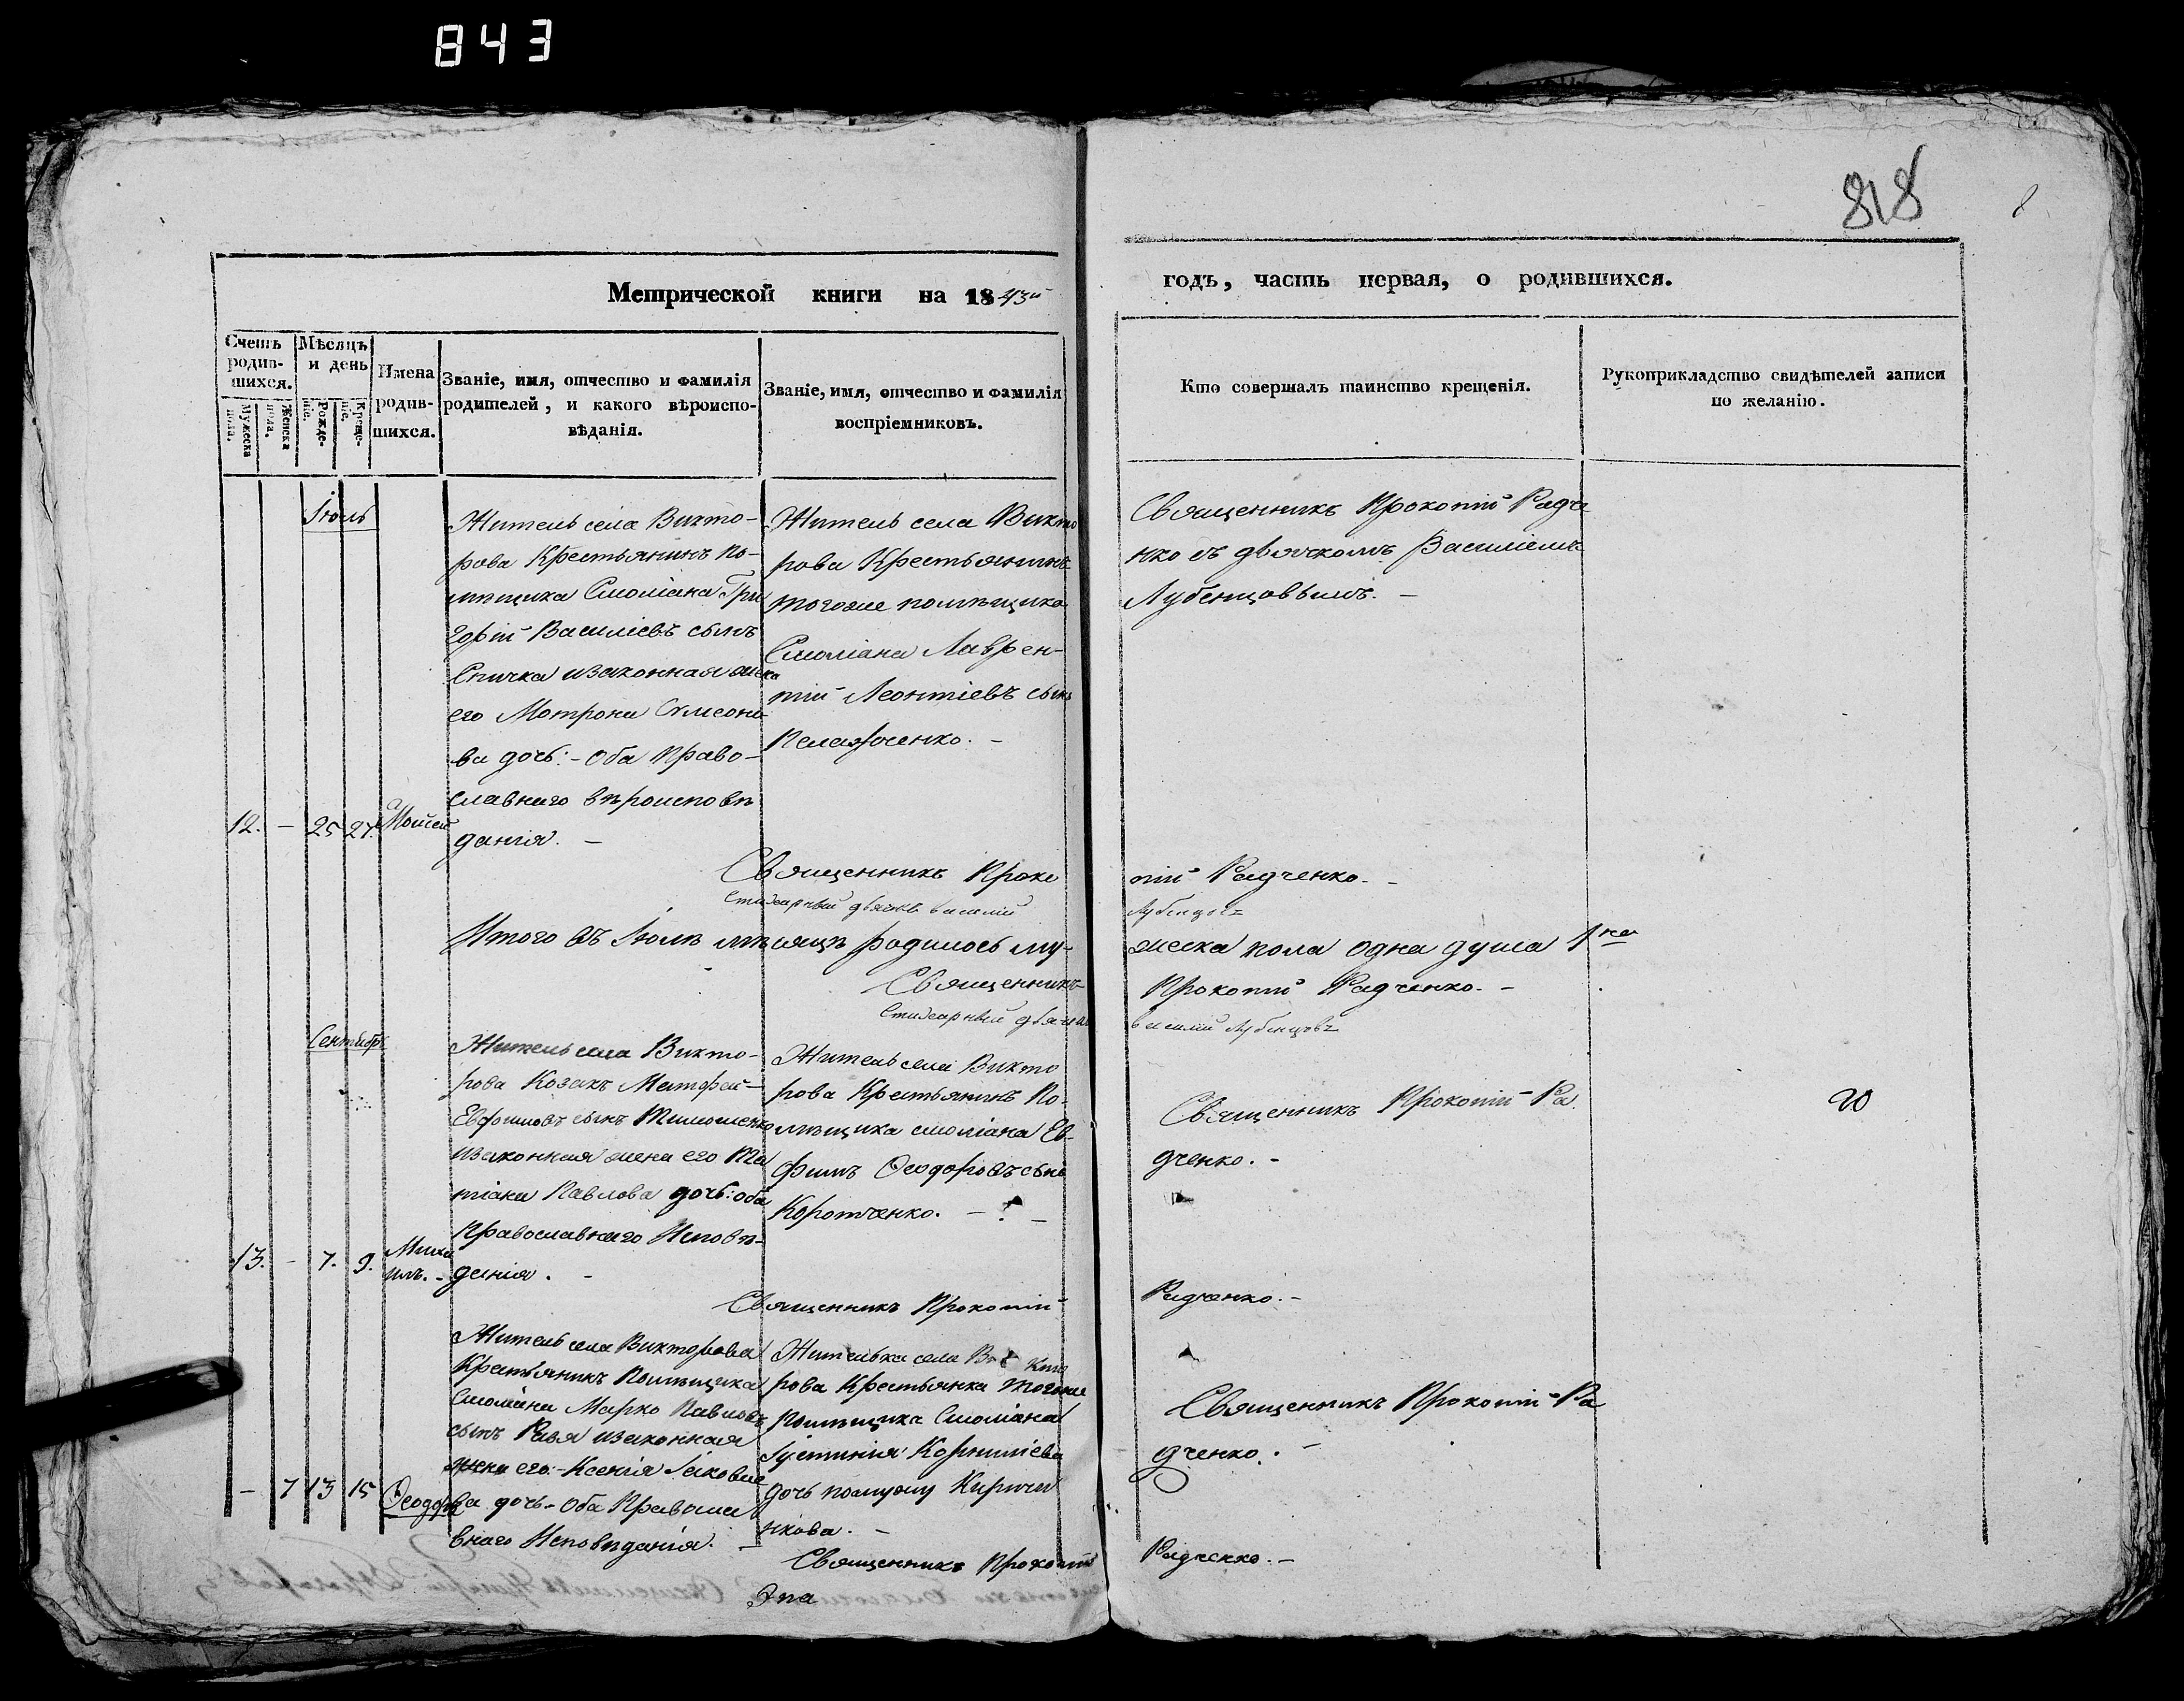 843
818
Метрической книги на 1843й
годъ, часть первая, о родившихся.
Счетъ родив-шихся.
Мужеска пола.
Женска пола.
Мѣсяцъ и день
Рожде-нія.
Креще-нія.
Имена родив-шихся.
Званіе, имя, отчество и фамилія
родителей, и какого вѣроиспо-
вѣданія.
Званіе, имя, отчество и фамилія
воспріемниковъ.
Кто совершалъ таинство крещенія.
Рукоприкладство свидѣтелей записи
по желанію.
Іюль
12. - 25 27. Моисей
Житель села Викто-
рова Крестьянинъ по-
мѣщика Смоліана Гри
горій Василіевъ сынъ
Спичка изаконная жена
его Мотрона Сѵмеоно
ва дочь:- оба Право-
славнаго вѣроисповѣ
данія. -
Житель села Викто
рова Крестьянинъ
тогоже помѣщика
Смоліана Лаврен-
тій Леонтіевъ сынъ
Священникъ Прокопій Радче
нко съ дьячкомъ Василіемъ
Лубенцовымъ. -
Священникъ Проко
пій Радченко. -
Стихарный дьячокъ василій
Лубенцовъ
Итого въ Іюлѣ мѣсяцѣ родилось му-
жеска пола одна душа 1на
Священникъ
Прокопій Радченко. -
Стихарный дьячок
василій Лубенцовъ
Сентябрь
13. - 7. 9. Миха
илъ. -
Житель села Викто-
рова Козакъ Матфей
Евфимовъ сынъ Тимошенко
изаконная жена его Та
тіана Павлова дочь: оба
Православнаго Исповѣ-
данія. -
Житель села Викто
рова Крестьянинъ По-
мѣщика смоліана Ев-
фимъ Ѳеодоровъ сынъ
Коротченко. -
Священникъ Прокопій Ра
дченко. -
20
Священникъ Прокопій
Радченко. -
- 7 13 15 Ѳеодора
Житель села Викторова
Крестьянинъ Помѣщика
Смоліана Марко Павловъ
сынъ изаконная
жена его:- Ксенія Іаковле
ва дочь - Оба Правосла
внаго Исповѣданія. -
Жителька села Викто
рова Крестьянка тогоже
Помѣщика Смоліана
Іустинія Корниліева
дочь помужу Киричи
нкова. -
Священникъ Прокопій Ра
дченко. -
Священникъ Прокопій
Радченко. -
Эпа